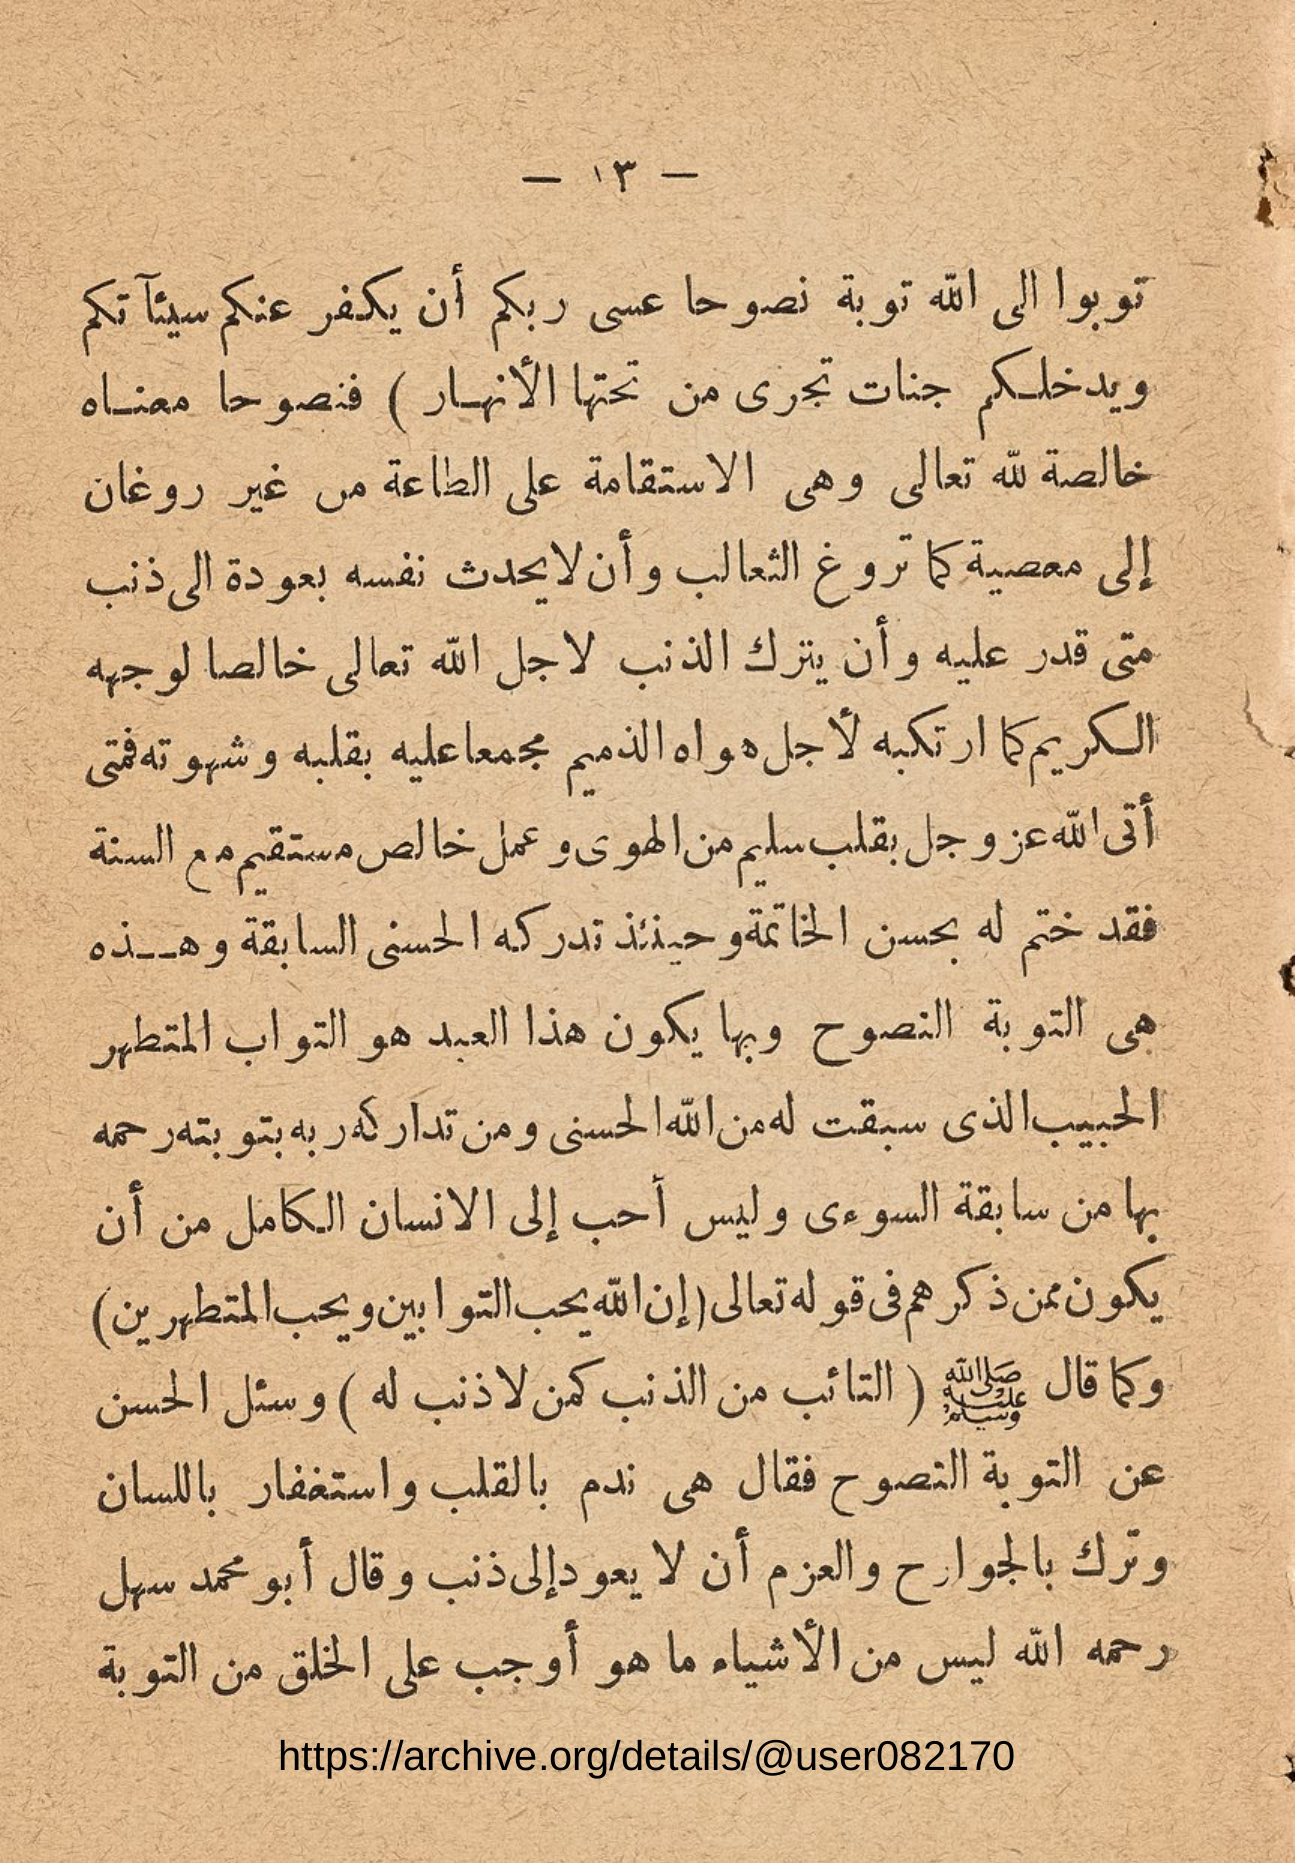 — ١٣ —
توبوا الى الله توبة نصوحا عسى ربكم أن يكفر عنكم سيئآتكم
ويدخلكم جنات تجرى من تحتها الأنهار ) فنصوحا معناه
خالصة لله تعالى وهى الاستقامة على الطاعة من غير روغان
إلى معصية كما تروغ الثعالب وأن لا يحدث نفسه بعودة الى ذنب
متى قدر عليه وأن يترك الذنب لاجل الله تعالى خالصا لوجهه
الكريم كما ارتكبه لأجل هواه الذميم مجمعا عليه بقلبه وشهوته فمتى
أتى الله عز وجل بقلب سليم من الهوى وعمل خالص مستقيم مع السنة
فقد ختم له بحسن الخاتمة وحينئذ تدركه الحسنى السابقة وهذه
هى التوبة النصوح وبها يكون هذا العبد هو التواب المتطهر
الحبيب الذى سبقت له من الله الحسنى ومن تداركه ربه بتوبته رحمه
بها من سابقة السوءى وليس أحب إلى الانسان الكامل من أن
يكون ممن ذكرهم فى قوله تعالى (إن الله يحب التوابين ويحب المتطهرين)
وكما قال ﷺ ( التائب من الذنب كمن لا ذنب له ) وسئل الحسن
عن التوبة النصوح فقال هى ندم بالقلب واستغفار باللسان
وترك بالجوارح والعزم أن لا يعود إلى ذنب وقال أبو محمد سهل
رحمه الله ليس من الأشياء ما هو أوجب على الخلق من التوبة
https://archive.org/details/@user082170